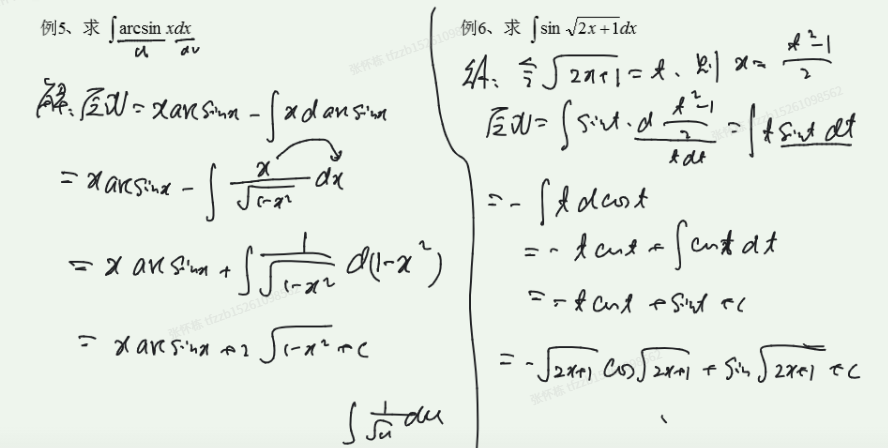 例5、求 ∫arcsin xdx
u dv
解：原式= x arcsinx - ∫ x d arcsinx
= x arcsinx - ∫ x/√(1-x²) dx
= x arcsinx + ∫ 1/√(1-x²) d(1-x²)
= x arcsinx + 2√(1-x²) + C
∫ 1/√u du
例6、求 ∫sin √(2x+1)dx
解：令 √(2x+1) = t、则 x = (t²-1)/2
原式= ∫ sint · d (t²-1)/2 = ∫ t sint dt
tdt
= - ∫ t dcost
= - t cost + ∫ cost dt
= - t cost + sint + C
= - √(2x+1) cos√(2x+1) + sin√(2x+1) + C